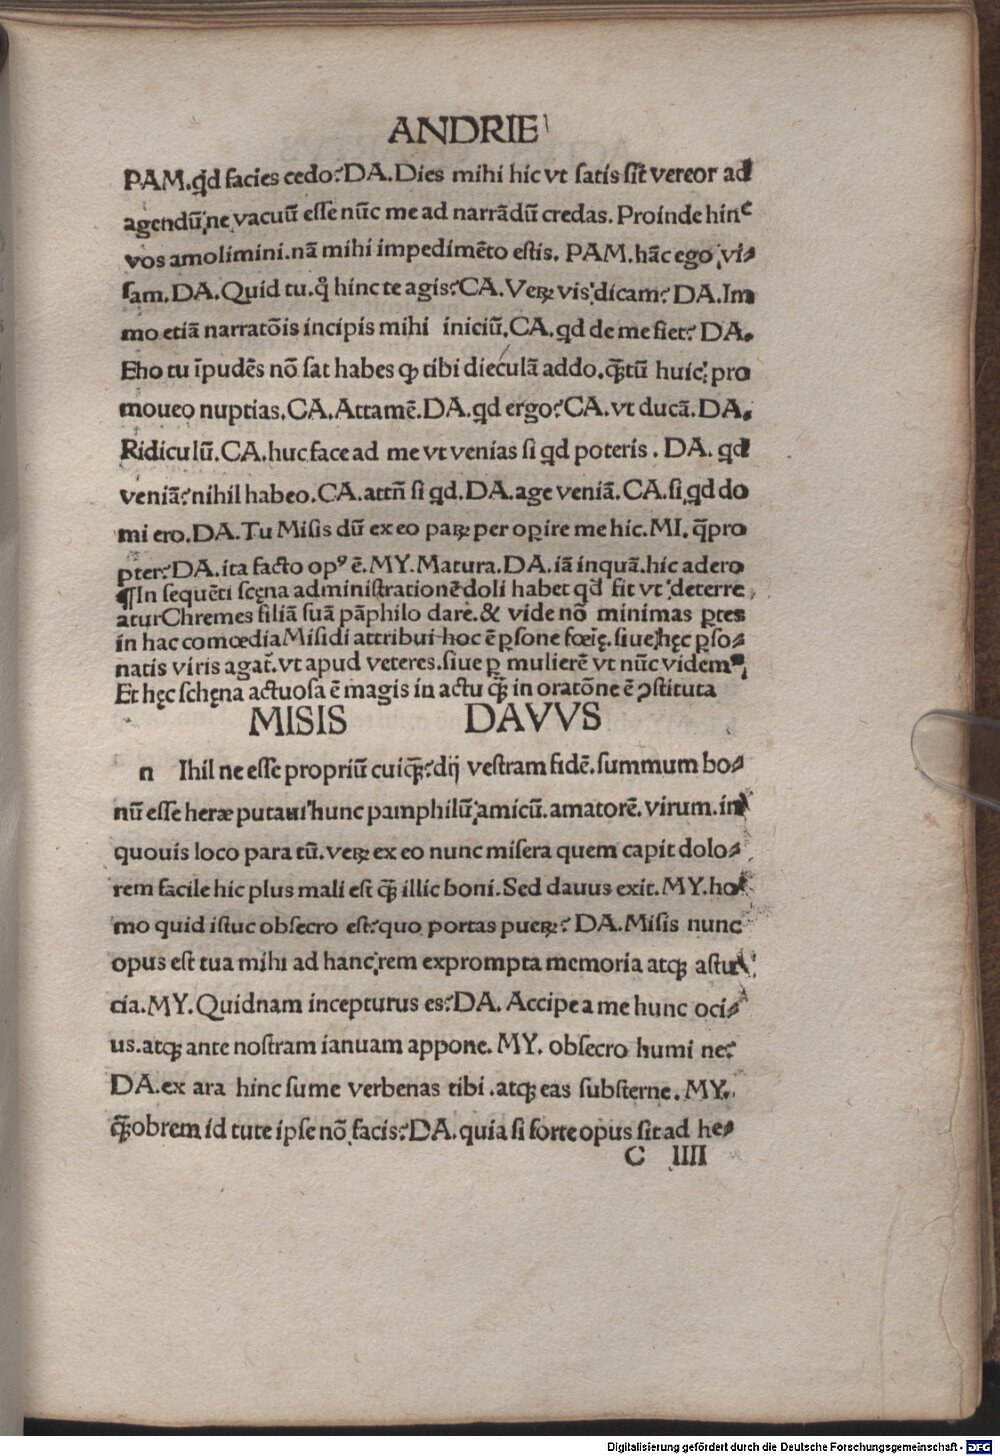 ANDRIE
PAM.qd facies cedo? DA.Dies mihi hic vt satis sit̄ vereor ad
agendū; ne vacuū esse nūc me ad narrādū credas. Proinde hinc
vos amolimini. nā mihi impedimēto estis. PAM. hāc ego vi⸗
sam. DA. Quid tu. q̄ hinc te agis? CA. Veꝝ vis dicam? DA. Im
mo etiā narratōis incipis mihi iniciū. CA. qd de me fiet? DA.
Eho tu īpudēs nō sat habes ꝙ tibi dieculā addo. q̄tū huic; pro
moueo nuptias. CA. Attamē. DA. qd ergo? CA. vt ducā. DA.
Ridiculū. CA. huc face ad me vt venias si qd poteris. DA. qd
veniā? nihil habeo. CA. attn̄ si qd. DA. age veniā. CA. si qd do
mi ero. DA. Tu Misis dū ex eo paꝝ per oꝑire me hic. MI. q̄pro
pter? DA. ita facto opꝰ ē. MY. Matura. DA. iā inquā. hic adero
¶In sequēti scęna administrationē doli habet qd fit vt deterre
atur Chremes filiā suā pāphilo dare. & vide nō minimas ꝑtes
in hac comœdia Misidi attribui hoc ē ꝑsone fœīę. siue hęc ꝑso⸗
natis viris agat̄. vt apud veteres. siue ꝑ mulierē vt nūc videmꝰ
Et hęc schęna actuosa ē magis in actu q̄ꝫ in oratōne ē ꝯstituta
MISIS DAVVS
n Ihil ne esse propriū cuiq̄ꝫ? dij vestram fidē. summum bo⸗
nū esse heræ putaui hunc pamphilū; amicū. amatorē. virum. in
quouis loco paratū. veꝝ ex eo nunc misera quem capit dolo⸗
rem facile hic plus mali est q̄ꝫ illic boni. Sed dauus exit. MY. ho
mo quid istuc obsecro est? quo portas pueꝝ? DA. Misis nunc
opus est tua mihi ad hanc rem exprompta memoria atqꝫ astu
cia. MY. Quidnam incepturus es? DA. Accipe a me hunc oci⸗
us. atqꝫ ante nostram ianuam appone. MY. obsecro humi ne?
DA. ex ara hinc sume verbenas tibi. atqꝫ eas substerne. MY.
q̄ꝫobrem id tute ipse nō facis? DA. quia si forte opus sit ad he⸗
C IIII
Digitalisierung gefördert durch die Deutsche Forschungsgemeinschaft - DFG